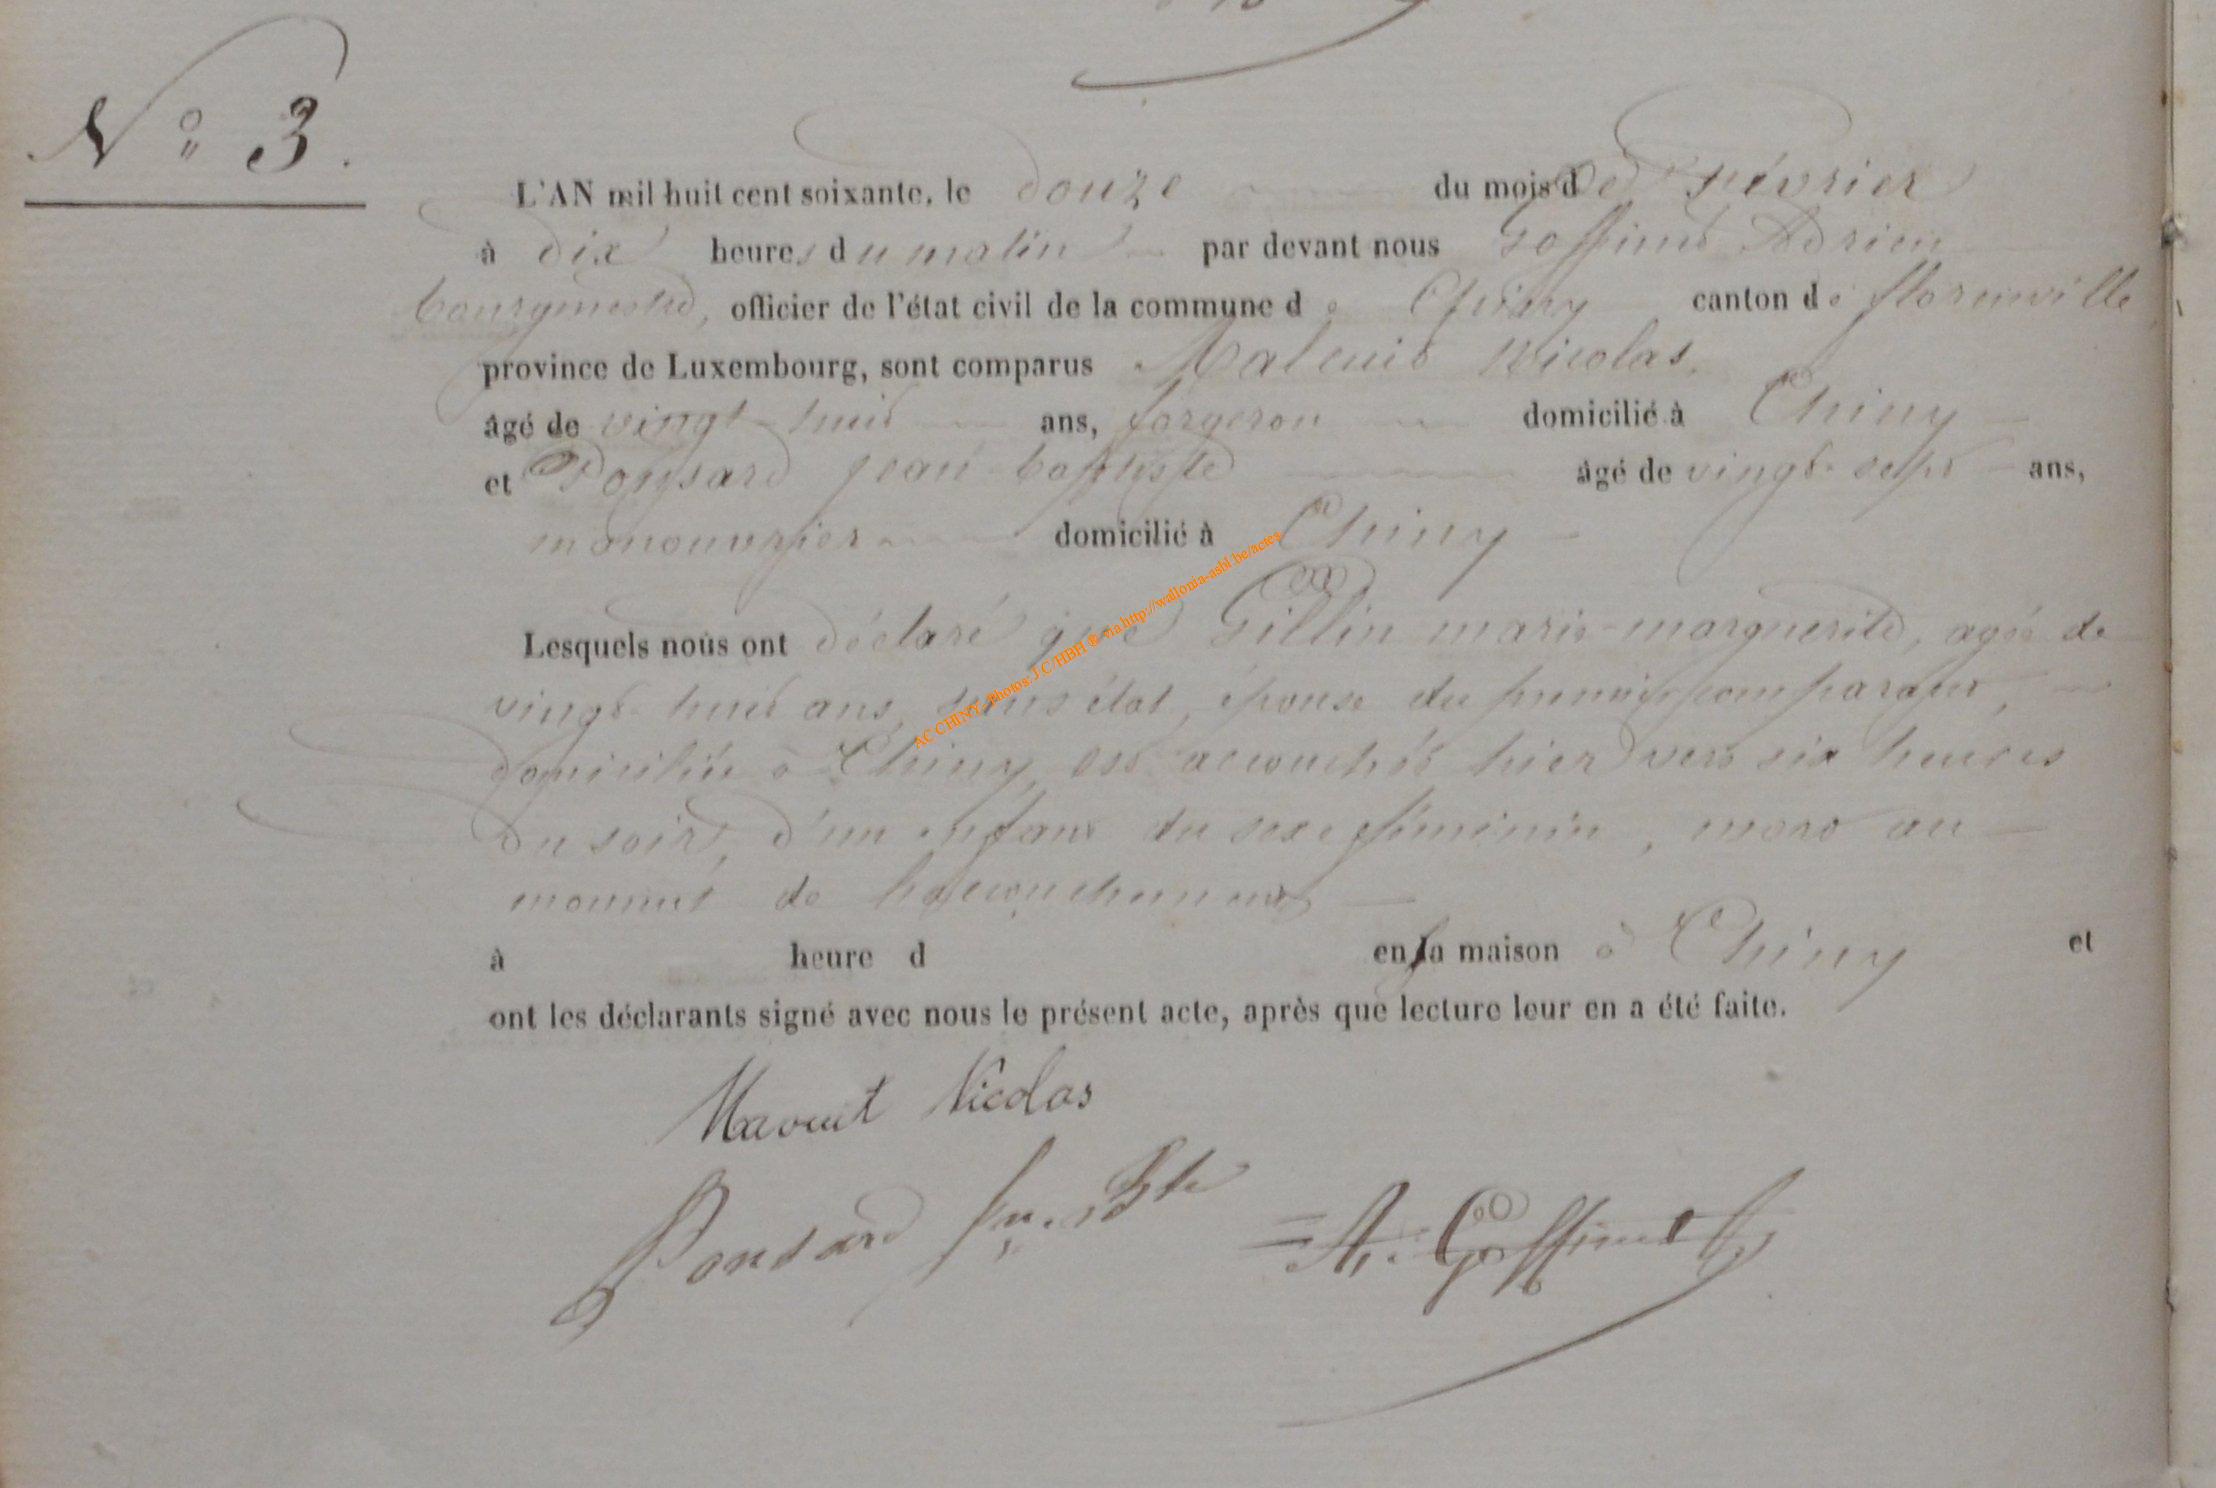 N° 3.
L'AN mil huit cent soixante, le douze du mois de février
à dix heures du matin par devant nous Goffinet Adrien
bourgmestre, officier de l'état civil de la commune de Chiny canton de florenville
province de Luxembourg, sont comparus Nicolas,
âgé de vingt-huit ans, forgeron domicilié à Chiny
et Ponsard jean-baptiste âgé de vingt-sept ans,
manouvrier domicilié à Chiny
Lesquels nous ont déclaré que Gillin marie-marguerite, agée de
vingt-huit ans, sans état, épouse du premier comparant,
domiciliée à Chiny, est accouchée hier vers six heures
du soir, d'un enfant du sexe féminin, mort au
moment de l'accouchement
à heure d en la maison à Chiny et
ont les déclarants signé avec nous le présent acte, après que lecture leur en a été faite.
Nicolas
Ponsard Jn. Bte
A. Goffinet
AC CHINY, Photos: J C/HBH ® via http://wallonia-asbl.be/actes